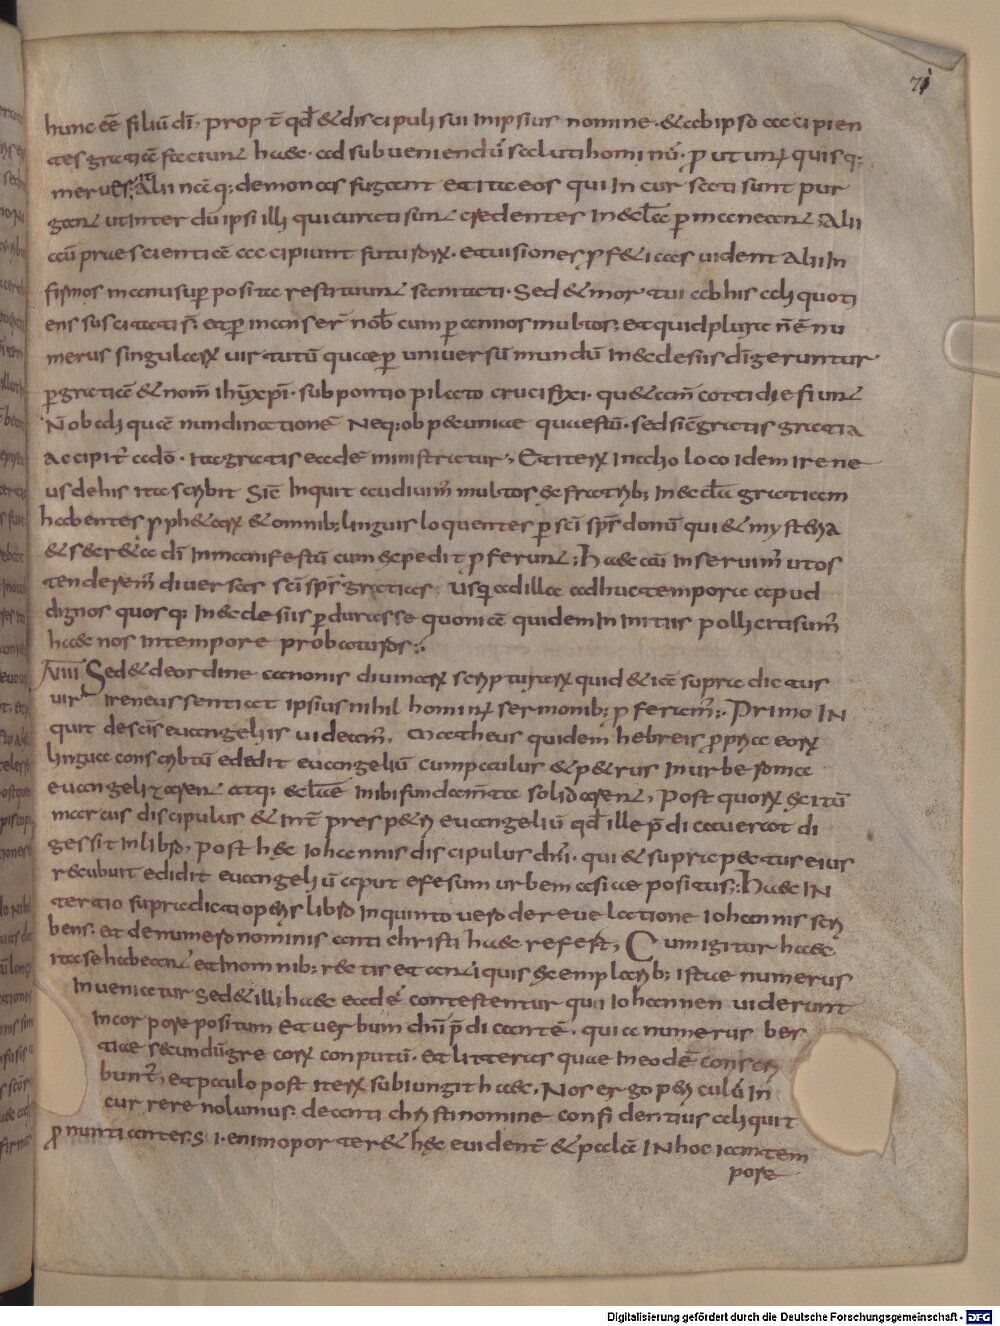 71
hunc eē filiū dī, prop t̄ qd̄ & discipuli sui in ipsius nomine · & ab ipso accipien
tes gratiā faciunt haec · ad subueniendū saluti hominū · p̄ ut unusquisq;
meruit, Alii nāq; demones fugant et ita eos qui incursati sunt pur
gant ut interdū ipsi illi qui curati sunt credentes in eclā permaneant; Alii
aū praescientiā accipiunt futurorū · et uisiones p̄f&icas uident Alii in
firmos manu superposita restituunt sanitati · Sed & mortui ab his aliquoti
ens suscitati s̄ · et permanser̄ nob̄ cum per annos multos; et quid plura n̄ ē nu
merus singularū uirtutū quae per uniuersū mundū in ecclesiis dī geruntur
per gratiā & nom̄ ihū xpī · sub pontio pilato crucifixi · qu& eam̄ cottidie fiunt
N̄ ob aliquā nundinationē Neq; ob pecuniae quaestū · sed sic̄ gratis gratia
accipit̄ a dō · ita gratis eadē ministratur, Et iterū in alio loco idem irene
us de his ita scribit Sic̄ inquit audiuim̄ multos & fratrib; in eclā gratiam
habentes proph&arū & omnib; linguis loquentes per scī sp̄s donū qui & mysteria
& secr&a dī in manifestū cum expedit p̄ferunt; haec aū inseruim̄ ut os
tenderem̄ diuersas scī sp̄s gratias usq; ad illa adhuc tempora apud
dignos quosq; in ecclesiis p̄durasse quoniā quidem in initiis polliciti sum̄
haec nos in tempore probaturos;
VIII Sed & de ordine canonis diuinarū scripturarū quid & iā supra dictus
uir Ireneus sentiat ipsius nihilhominus sermonib; p̄feram̄; Primo in
quit de scīs euangeliis uideam̄, Matheus quidem hebreis propria eorū
lingua conscribtū edidit euangeliū cum paulus & p&rus in urbe roma
euangelizarent atq; eclāē inibi fundam̄ta solidarent, Post quorū exitū
marcus discipulus & int̄pres p&ri euangeliū qd̄ ille p̄dicauerat di
gessit in libro, post hęc Iohannis discipulus dn̄i · qui & supra pectus eius
recubuit edidit euangeliū aput efesum urbem asiae positus; Haec in
tertio supradicti operis libro In quinto uero de reuelatione Iohannis scri
bens · et de numero nominis anti christi haec refert, Cum igitur haec
ita se habeant et in omnib; rectis et antiquis exemplarib; iste numerus
inueniatur sed & illi haec eadē contestentur qui Iohannen uiderunt
in corpore positum et uerbum dn̄i p̄dicantē · quia numerus bes
tiae secundū grecorū conputū · et litteras quae in eodē conscri
bunt̄, et paulo post iterū subiungit haec, Nos ergo periculū in
currere nolumus · de anti christi nomine confidentius aliquit
p̄nuntiantes; si · enim oporter& hęc euident̄ & palā in hoc iam tem
pore
Digitalisierung gefördert durch die Deutsche Forschungsgemeinschaft - DFG